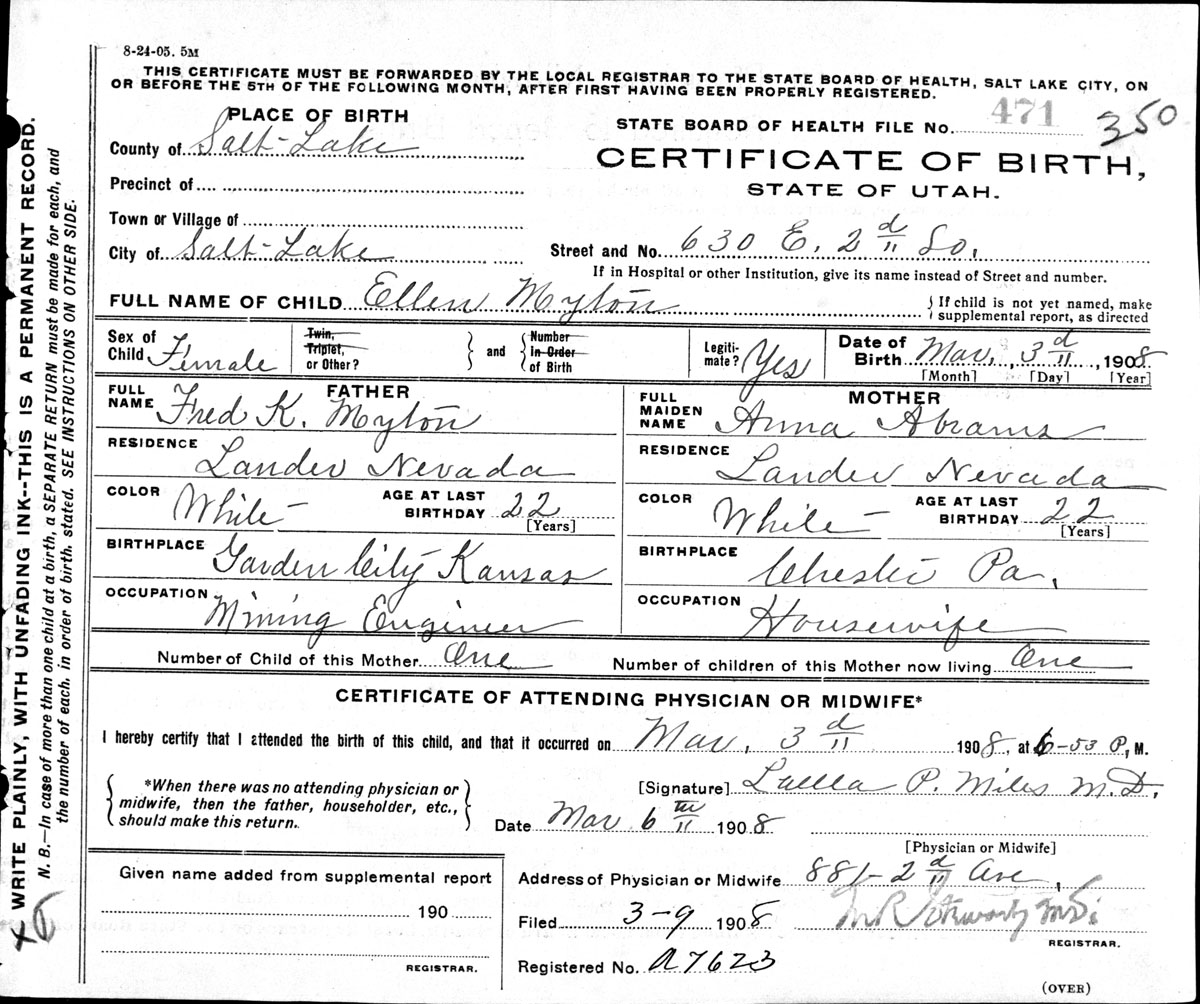 8-24-05. 5M
THIS CERTIFICATE MUST BE FORWARDED BY THE LOCAL REGISTRAR TO THE STATE BOARD OF HEALTH, SALT LAKE CITY, ON
OR BEFORE THE 5TH OF THE FOLLOWING MONTH, AFTER FIRST HAVING BEEN PROPERLY REGISTERED.
PLACE OF BIRTH
STATE BOARD OF HEALTH FILE No. 471 350
County of Salt Lake
CERTIFICATE OF BIRTH,
STATE OF UTAH.
Precinct of
Town or Village of
City of Salt Lake
Street and No. 630 E. 2d So.
If in Hospital or other Institution, give its name instead of Street and number.
FULL NAME OF CHILD Ellen Myton
If child is not yet named, make
supplemental report, as directed
Sex of Child Female
Twin, Triplet, or Other?
and
Number in Order of Birth
Legitimate? Yes
Date of Birth Mar. 3d, 1908
[Month] [Day] [Year]
FATHER
FULL NAME Fred K. Myton
RESIDENCE Lander Nevada
COLOR White
AGE AT LAST BIRTHDAY 22
[Years]
BIRTHPLACE Garden City Kansas
OCCUPATION Mining Engineer
MOTHER
FULL MAIDEN NAME Anna Abrams
RESIDENCE Lander Nevada
COLOR White
AGE AT LAST BIRTHDAY 22
[Years]
BIRTHPLACE Chester Pa.
OCCUPATION Housewife
Number of Child of this Mother One
Number of children of this Mother now living One
CERTIFICATE OF ATTENDING PHYSICIAN OR MIDWIFE*
I hereby certify that I attended the birth of this child, and that it occurred on Mar. 3d 1908, at 6-53 P, M.
*When there was no attending physician or
midwife, then the father, householder, etc.,
should make this return.
[Signature] Luella P. Miles M.D.
Date Mar 6th 1908
[Physician or Midwife]
Given name added from supplemental report
190
REGISTRAR.
Address of Physician or Midwife 881-2d Ave,
Filed 3-9 1908
M.R. M.D.
REGISTRAR.
Registered No. A7623
(OVER)
WRITE PLAINLY, WITH UNFADING INK--THIS IS A PERMANENT RECORD.
N. B.—In case of more than one child at a birth, a SEPARATE RETURN must be made for each, and
the number of each, in order of birth, stated. SEE INSTRUCTIONS ON OTHER SIDE.